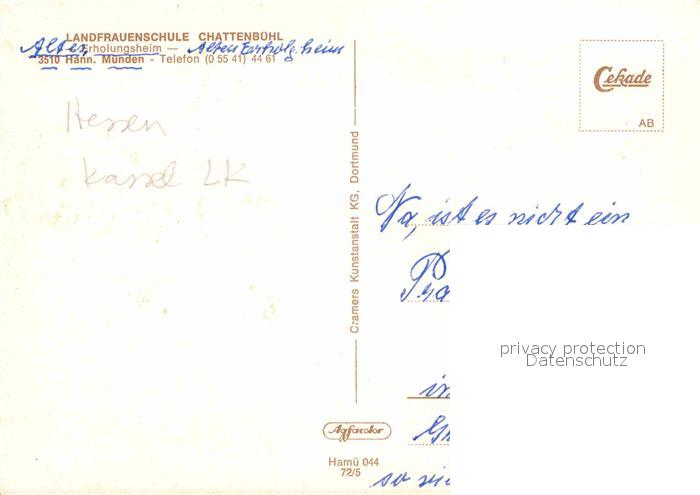 LANDFRAUENSCHULE CHATTENBÜHL
Alten Erholungsheim —
3510 Hann. Münden - Telefon (0 55 41) 44 61
Hessen
Kassel LK
Cramers Kunstanstalt KG, Dortmund
Cekade
AB
Na, ist es nicht ein
privacy protection
Datenschutz
Agfacolor
Hamü 044
72/5
so